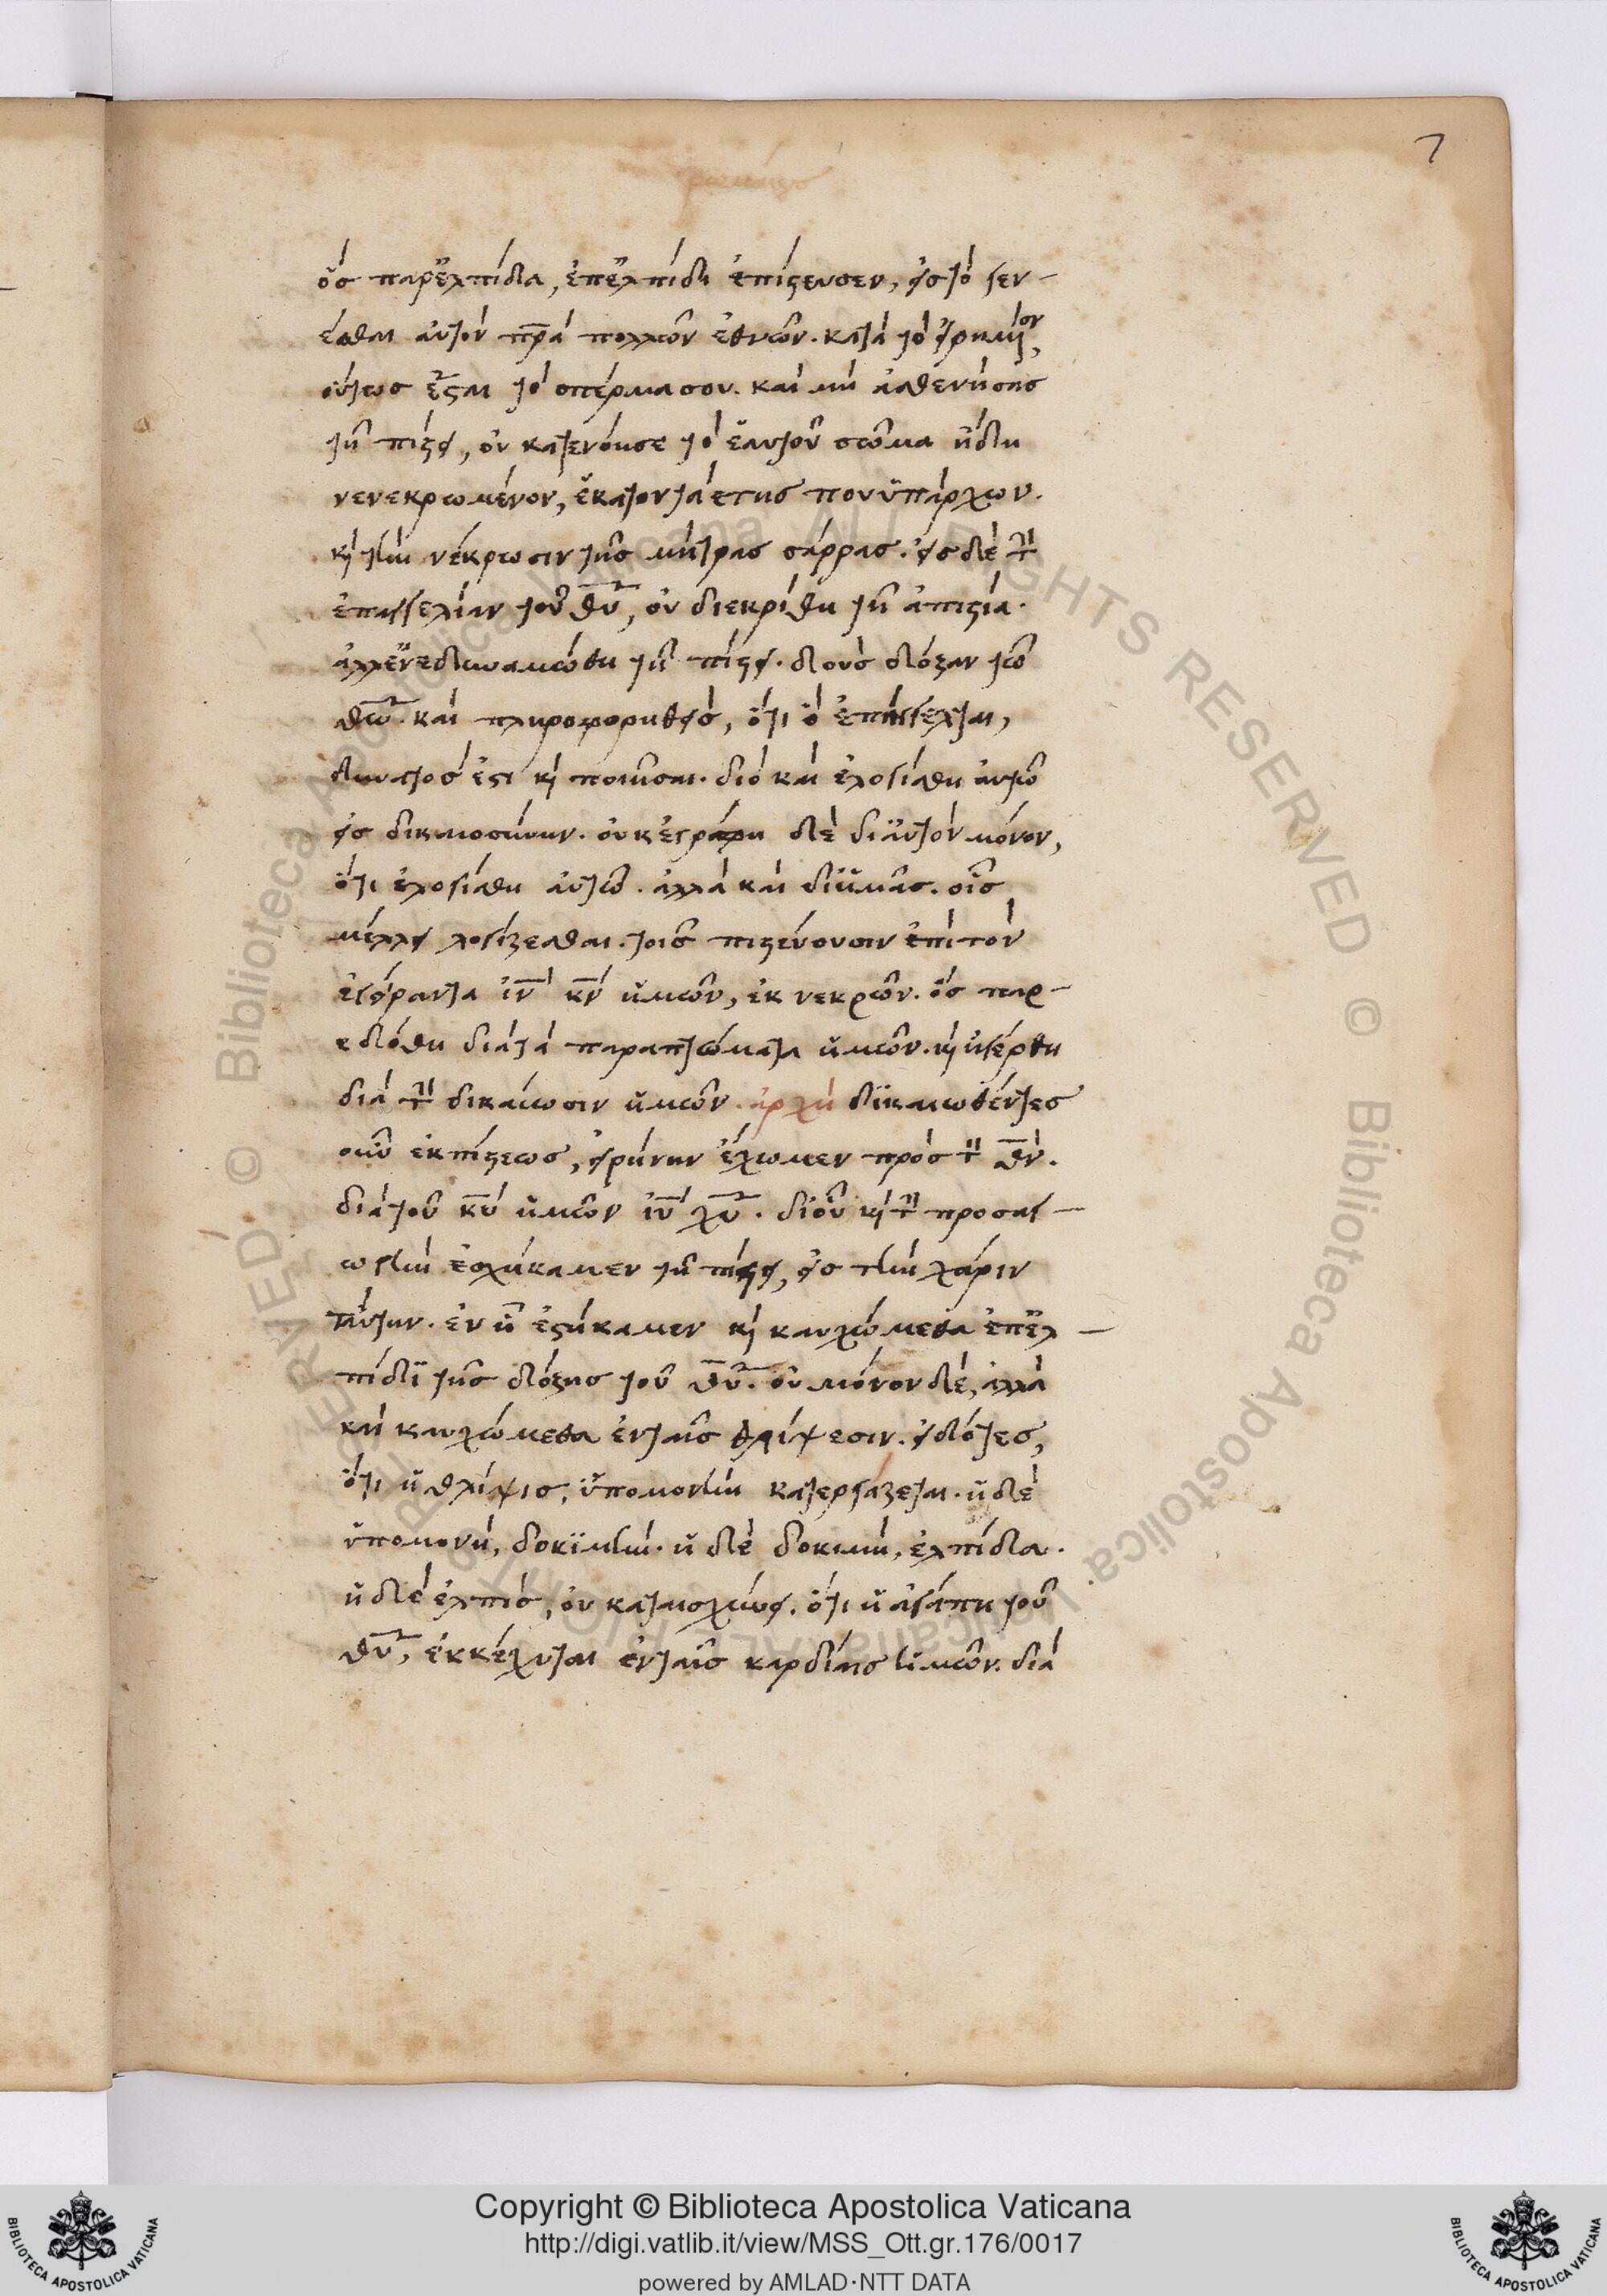 7
ὃς παρ' ἐλπίδα, ἐπ' ἐλπίδι ἐπίστευσεν, εἰς τὸ γεν-
έσθαι αὐτὸν πρ̅α πολλῶν ἐθνῶν. κατὰ τὸ εἰρημένον,
οὕτως ἔσται τὸ σπέρμα σου. καὶ μὴ ἀσθενήσας
τῆ πίστει, οὐ κατενόησε τὸ ἑαυτοῦ σῶμα ἤδη
νενεκρωμένον, ἑκατονταέτης που ὑπάρχων.
κ̀ τὴν νέκρωσιν τῆς μήτρας σάρρας. εἰς δὲ τὴν
ἐπαγγελίαν τοῦ θ̅υ, οὐ διεκρίθη τῆ ἀπιστία.
ἀλλ' ἐνεδυναμώθη τῆ πίστει. δοὺς δόξαν τῶ
θ̅ω. καὶ πληροφορηθεὶς, ὅτι ὃ ἐπήγγελται,
δυνατός ἐστι κ̀ ποιῆσαι. διὸ καὶ ἐλογίσθη αὐτῶ
εἰς δικαιοσύνην. οὐκ ἐγράφη δὲ δι' αὐτὸν μόνον,
ὅτι ἐλογίσθη αὐτῶ. ἀλλὰ καὶ δι' ἡμᾶς. οἷς
μέλλει λογίζεσθαι. τοῖς πιστεύουσιν ἐπὶ τὸν
ἐγείραντα ι̅ν κ̅ν ἡμῶν, ἐκ νεκρῶν. ὃς παρ-
εδόθη διὰ τὰ παραπτώματα ἡμῶν. κ̀ ἠγέρθη
διὰ τὴν δικαίωσιν ἡμῶν. ἀρχὴ δικαιωθέντες
οὖν ἐκ πίστεως, εἰρήνην ἔχωμεν πρὸς τὸν θ̅ν.
διὰ τοῦ κ̅υ ἡμῶν ι̅υ χ̅υ. δι' οὗ κ̀ τὴν προσαγ-
ωγὴν ἐσχήκαμεν τῆ πίστει, εἰς τὴν χάριν
ταύτην. ἐν ἧ ἑστήκαμεν κ̀ καυχώμεθα ἐπ' ἐλ-
πίδι τῆς δόξης τοῦ θ̅υ. οὐ μόνον δέ, ἀλλὰ
καὶ καυχώμεθα ἐν ταῖς θλίψεσιν. εἰδότες,
ὅτι ἡ θλίψις, ὑπομονὴν κατεργάζεται. ἡ δὲ
ὑπομονὴ, δοκιμὴν. ἡ δὲ δοκιμὴ, ἐλπίδα.
ἡ δὲ ἐλπὶς, οὐ καταισχύνει. ὅτι ἡ ἀγάπη τοῦ
θ̅υ, ἐκκέχυται ἐν ταῖς καρδίαις ἡμῶν. διὰ
Copyright © Biblioteca Apostolica Vaticana
http://digi.vatlib.it/view/MSS_Ott.gr.176/0017
powered by AMLAD·NTT DATA